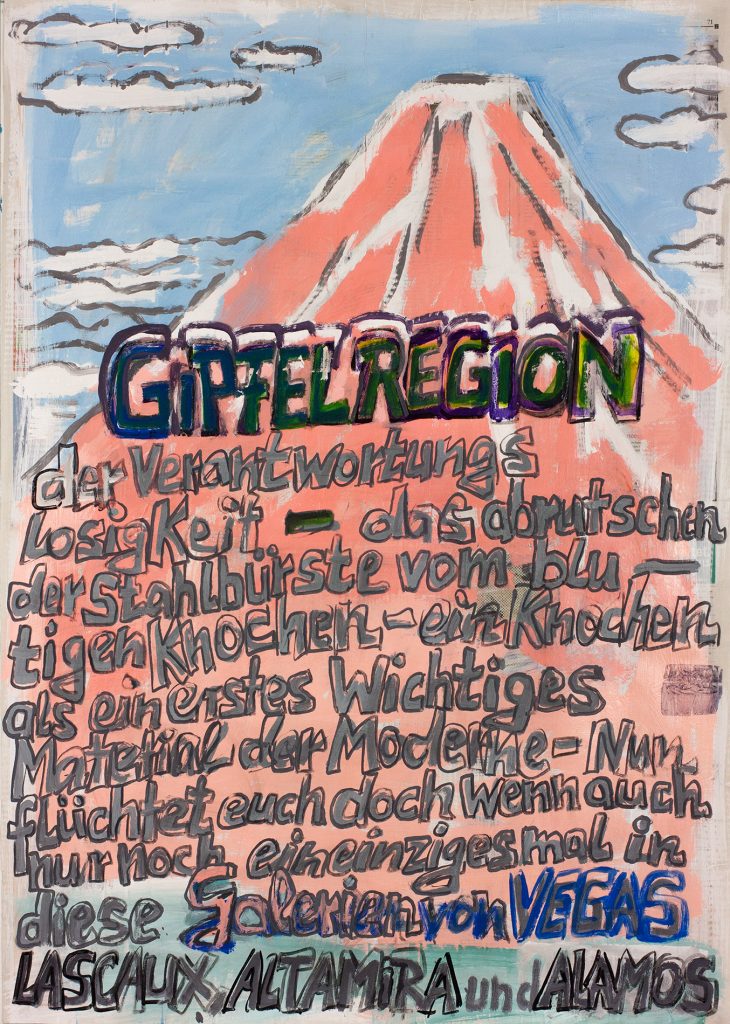 GiPFELREGiON
der Verantwortungs
losigkeit – das abrutschen
der Stahlbürste vom blu –
tigen Knochen – ein Knochen
als ein erstes Wichtiges
Material der Moderne – Nun
flüchtet euch doch wenn auch
nur noch eineinzigesmal in
diese Galerien von VEGAS
LASCAUX, ALTAMiRA und ALAMOS